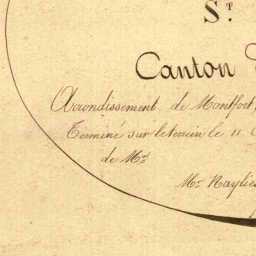 St.
Canton
Arrondissement de Montfort,
Terminé sur le terrein le 11
de Mrs
Mr. Naylies